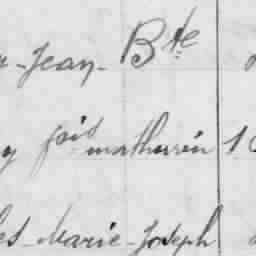 -Jean-Bte
y fois mathurin 10
es-Marie-Joseph